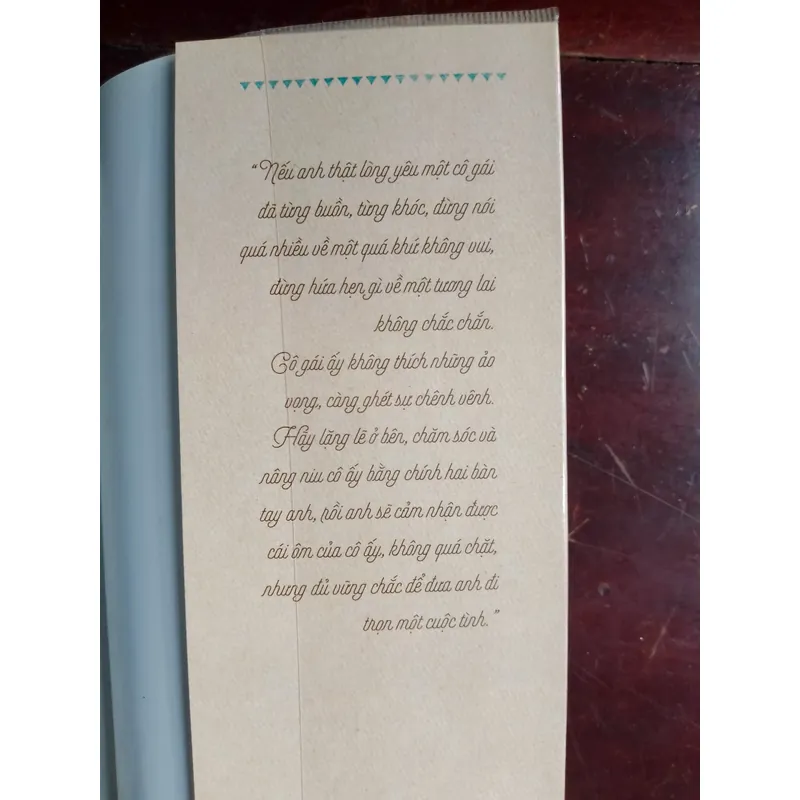 “Nếu anh thật lòng yêu một cô gái
đã từng buồn, từng khóc, đừng nói
quá nhiều về một quá khứ không vui,
đừng hứa hẹn gì về một tương lai
không chắc chắn.
Cô gái ấy không thích những ảo
vọng, càng ghét sự chênh vênh.
Hãy lặng lẽ ở bên, chăm sóc và
nâng niu cô ấy bằng chính hai bàn
tay anh, rồi anh sẽ cảm nhận được
cái ôm của cô ấy, không quá chặt,
nhưng đủ vững chắc để đưa anh đi
trọn một cuộc tình.”